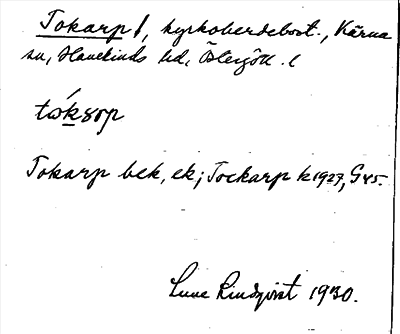 Tokarp 1, kyrkoherdebost., Kärna
sn, Hanekinds hd, Östergötl. l
tóksop
Tokarp bek, ek; Tockarp k 1927, G 45.
Sune Lindqvist 1930.